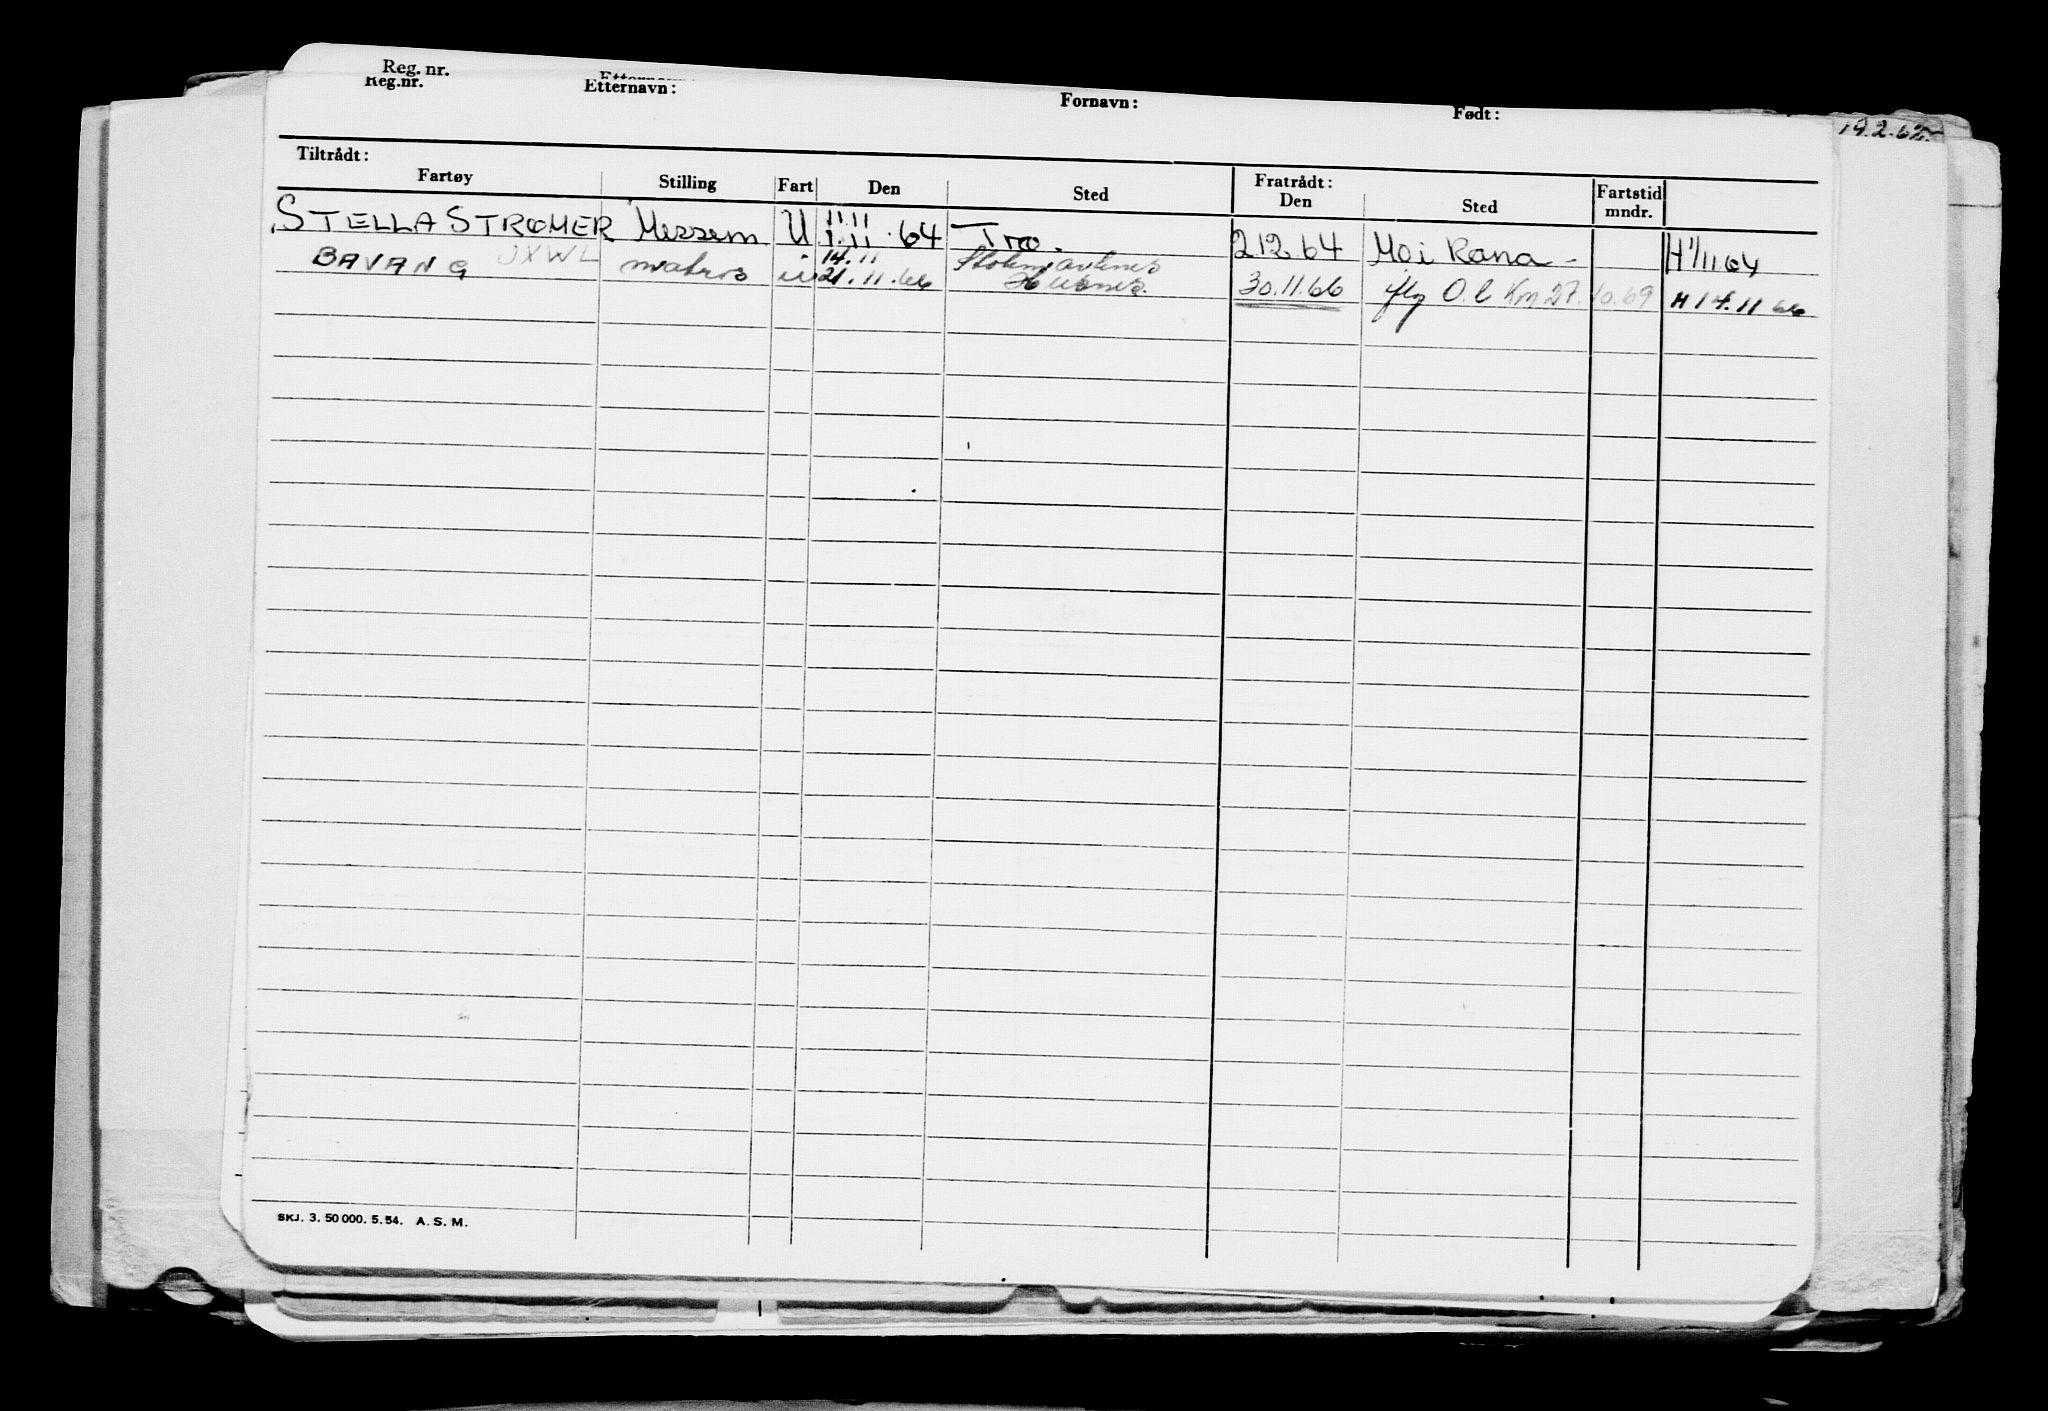 Reg. nr.
Reg.nr. Etternavn: Fornavn: Født:
19.2.62
Tiltrådt: Fratrådt:
Fartøy Stilling Fart Den Sted Den Sted Fartstid mndr.
11.11
STELLA STRØMER Messem U 1.11.64 Tro. 2.12.64 Mo i Rana - H 1/11 64
14.11 Stokmarknes
BAVANG JXWL matros u 21.11.66 Husnes. 30.11.66 iflg O.l Km 27.10.69 H 14.11 66
SKJ. 3. 50 000. 5. 54. A. S. M.